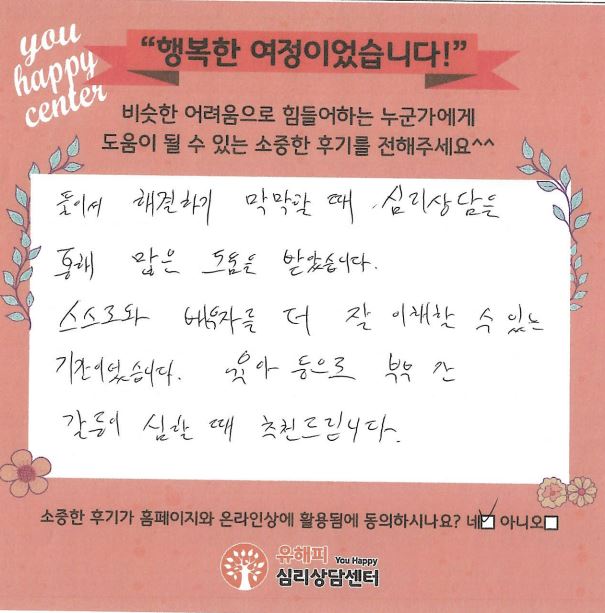 you
happy
center
“행복한 여정이었습니다!”
비슷한 어려움으로 힘들어하는 누군가에게
도움이 될 수 있는 소중한 후기를 전해주세요^^
둘이서 해결하기 막막할 때, 심리상담을
통해 많은 도움을 받았습니다.
스스로와 배우자를 더 잘 이해할 수 있는
기간이었습니다. 육아 등으로 부부 간
갈등이 심할 때 추천드립니다.
소중한 후기가 홈페이지와 온라인상에 활용됨에 동의하시나요? 네☑ 아니오☐
유해피 You Happy
심리상담센터